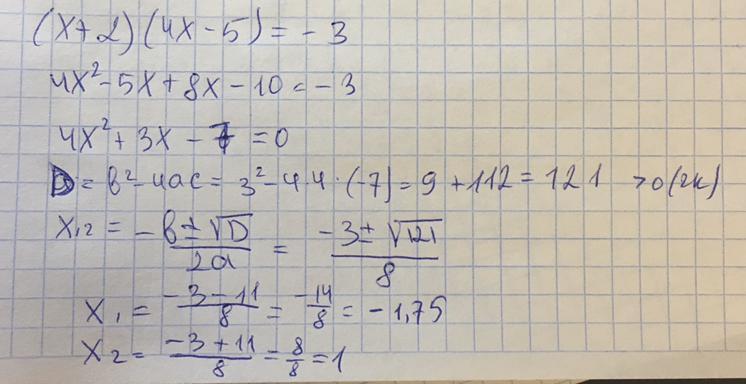 (x+2)(4x-5)=-3
4x²-5x+8x-10=-3
4x²+3x-7=0
D=b²-4ac=3²-4·4·(-7)=9+112=121 >0(2к)
x₁,₂=-b±√D/2a=-3±√121/8
x₁=-3-11/8=-14/8=-1,75
x₂=-3+11/8=8/8=1